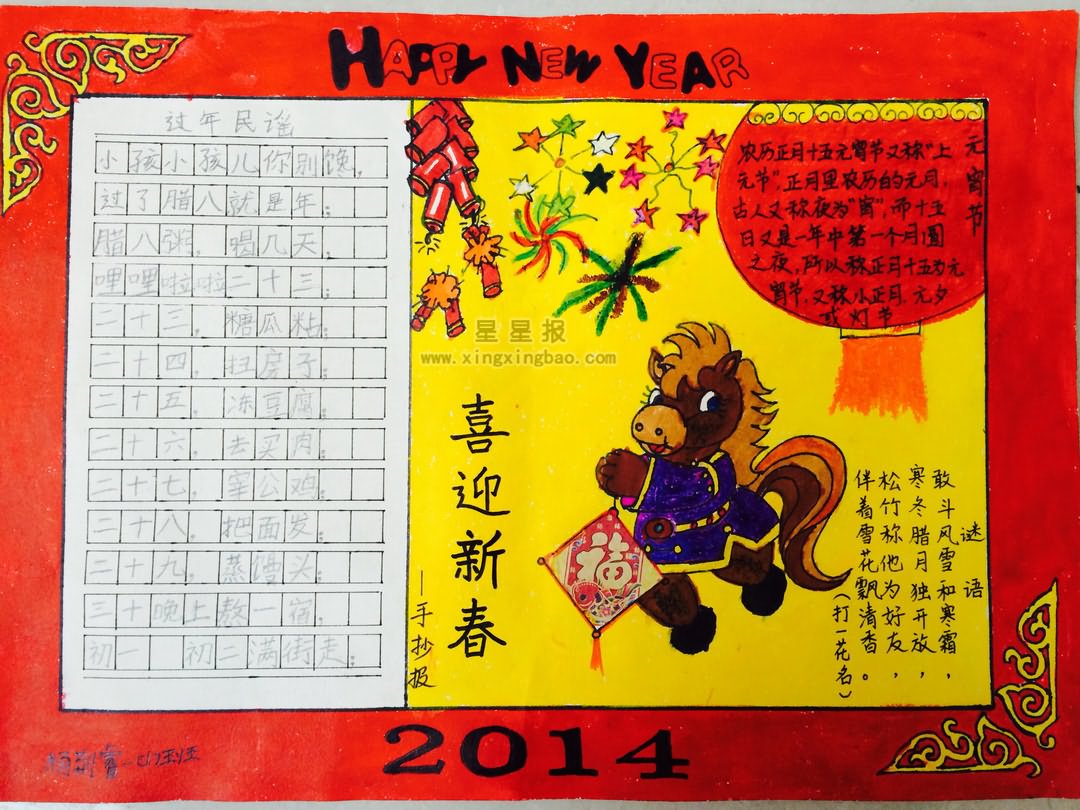 HAPPY NEW YEAR
过年民谣
小孩小孩儿你别馋，
过了腊八就是年；
腊八粥，喝几天，
哩哩啦啦二十三；
二十三，糖瓜粘；
二十四，扫房子；
二十五，冻豆腐；
二十六，去买肉；
二十七，宰公鸡；
二十八，把面发；
二十九，蒸馒头；
三十晚上熬一宿，
初一 初二满街走；
星星报
www.xingxingbao.com
喜迎新春
—手抄报
福
元宵节
农历正月十五元宵节又称"上
元节"，正月里农历的元月，
古人又称夜为"宵"，而十五
日又是一年中第一个月圆
之夜，所以称正月十五为元
宵节，又称小正月、元夕
或灯节
谜语
敢斗风雪和寒霜，
寒冬腊月独开放，
松竹称他为好友，
伴着雪花飘清香。
（打一花名）
2014